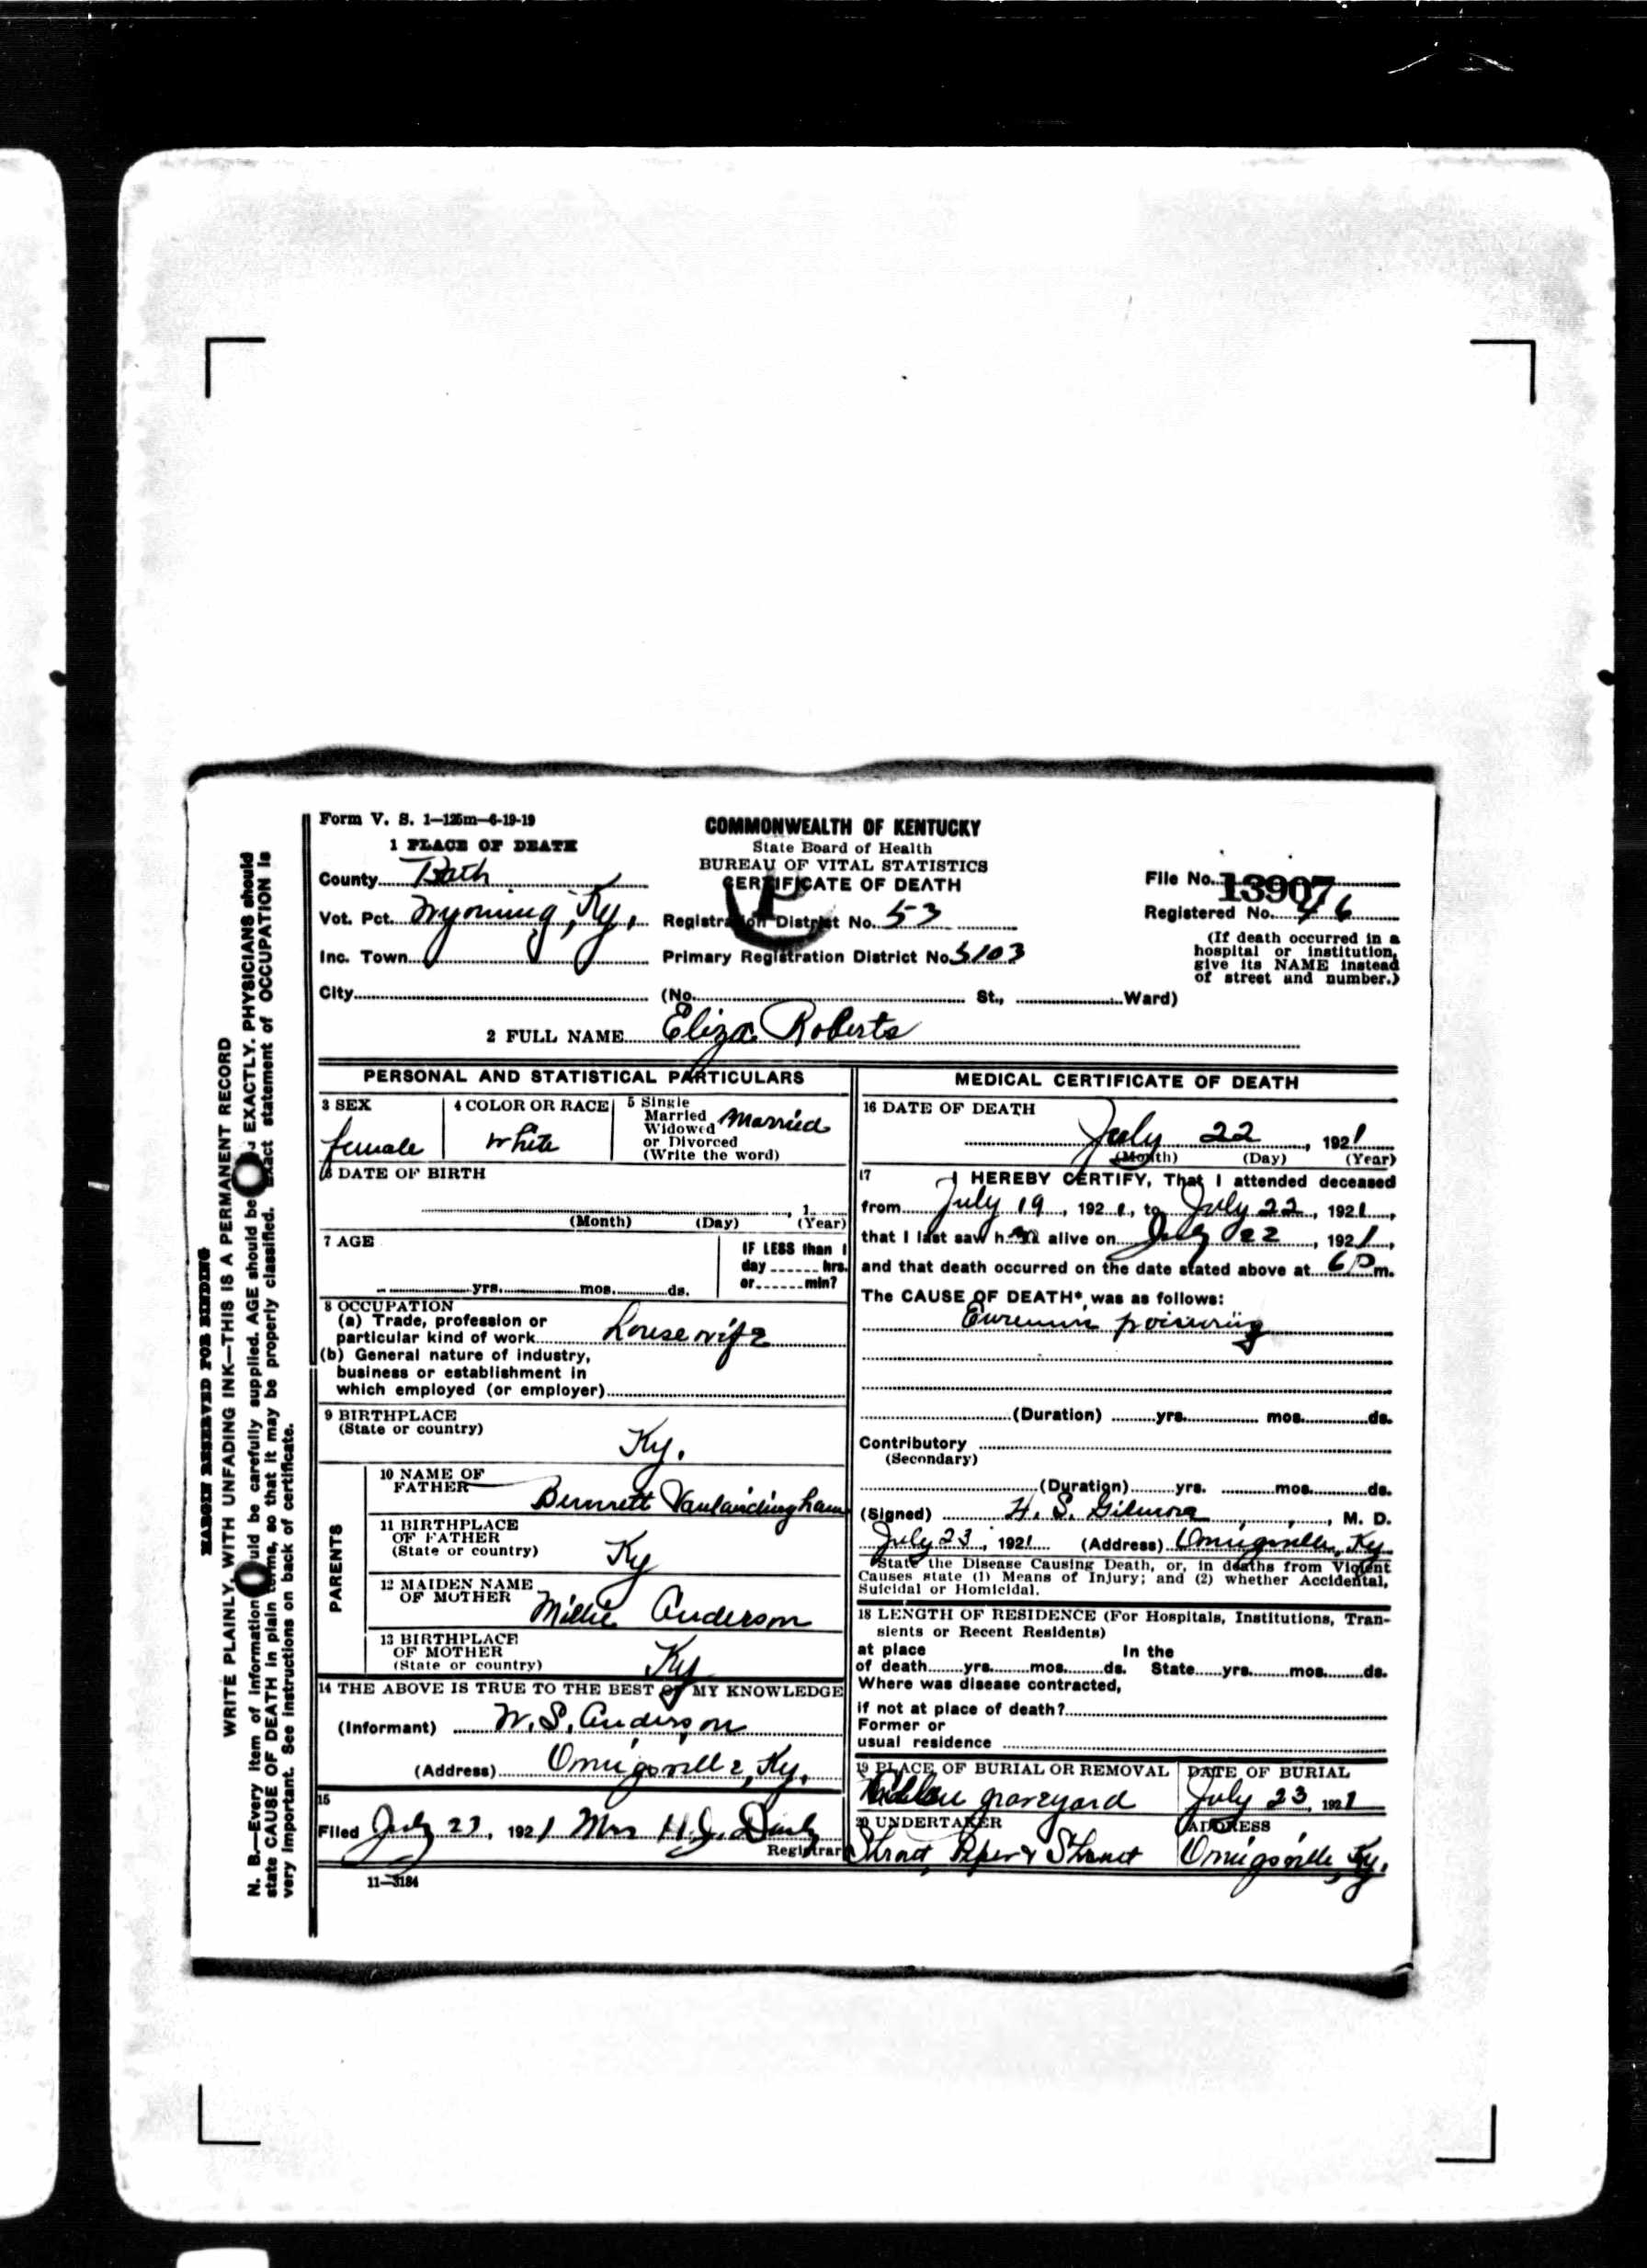 Form V. S. 1—125m—6-19-19
1 PLACE OF DEATH
County Bath
Vot. Pct. Wyoming, Ky.
Inc. Town
City
COMMONWEALTH OF KENTUCKY
State Board of Health
BUREAU OF VITAL STATISTICS
CERTIFICATE OF DEATH
Registration District No. 53
Primary Registration District No. 5103
(No. St., Ward)
File No. 13907
Registered No. 46
(If death occurred in a
hospital or institution,
give its NAME instead
of street and number.)
2 FULL NAME Eliza Roberts
PERSONAL AND STATISTICAL PARTICULARS
3 SEX
female
4 COLOR OR RACE
White
5 Single
Married
Widowed
or Divorced
(Write the word)
Married
6 DATE OF BIRTH
, 1
(Month) (Day) (Year)
7 AGE
yrs. mos. ds.
IF LESS than 1
day hrs.
or min?
8 OCCUPATION
(a) Trade, profession or
particular kind of work Housewife
(b) General nature of industry,
business or establishment in
which employed (or employer)
9 BIRTHPLACE
(State or country)
Ky.
PARENTS
10 NAME OF
FATHER
Bennett Vanlandingham
11 BIRTHPLACE
OF FATHER
(State or country)
Ky
12 MAIDEN NAME
OF MOTHER Millie Anderson
13 BIRTHPLACE
OF MOTHER
(State or country)
Ky
14 THE ABOVE IS TRUE TO THE BEST OF MY KNOWLEDGE
(Informant) W. S. Anderson
(Address) Owingsville, Ky.
15
Filed July 23, 1921 Mrs H. J.
Registrar
11—3184
MEDICAL CERTIFICATE OF DEATH
16 DATE OF DEATH
July 22, 1921
(Month) (Day) (Year)
17 I HEREBY CERTIFY, That I attended deceased
from July 19, 1921, to July 22, 1921,
that I last saw her alive on July 22, 1921,
and that death occurred on the date stated above at 6 P m.
The CAUSE OF DEATH* was as follows:
poisoning
(Duration) yrs. mos. ds.
Contributory
(Secondary)
(Duration) yrs. mos. ds.
(Signed) H. S. Gilmore, M. D.
July 23, 1921 (Address) Owingsville, Ky
*State the Disease Causing Death, or, in deaths from Violent
Causes state (1) Means of Injury; and (2) whether Accidental,
Suicidal or Homicidal.
18 LENGTH OF RESIDENCE (For Hospitals, Institutions, Tran-
sients or Recent Residents)
at place In the
of death yrs. mos. ds. State yrs. mos. ds.
Where was disease contracted,
if not at place of death?
Former or
usual residence
19 PLACE OF BURIAL OR REMOVAL
graveyard
DATE OF BURIAL
July 23, 1921
20 UNDERTAKER
Shrout, Piper & Shrout
ADDRESS
Owingsville, Ky.
MARGIN RESERVED FOR BINDING
WRITE PLAINLY, WITH UNFADING INK—THIS IS A PERMANENT RECORD
N. B.—Every item of information should be carefully supplied. AGE should be EXACTLY. PHYSICIANS should
state CAUSE OF DEATH in plain terms, so that it may be properly classified. Exact statement of OCCUPATION is
very important. See instructions on back of certificate.